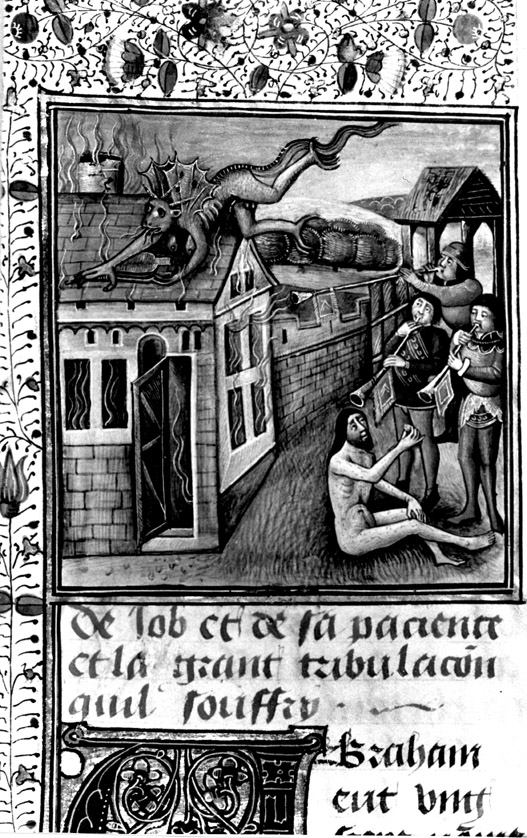 De Job et de sa pacience
et la grant tribulacōn
quil souffry
Abraham
eut vng